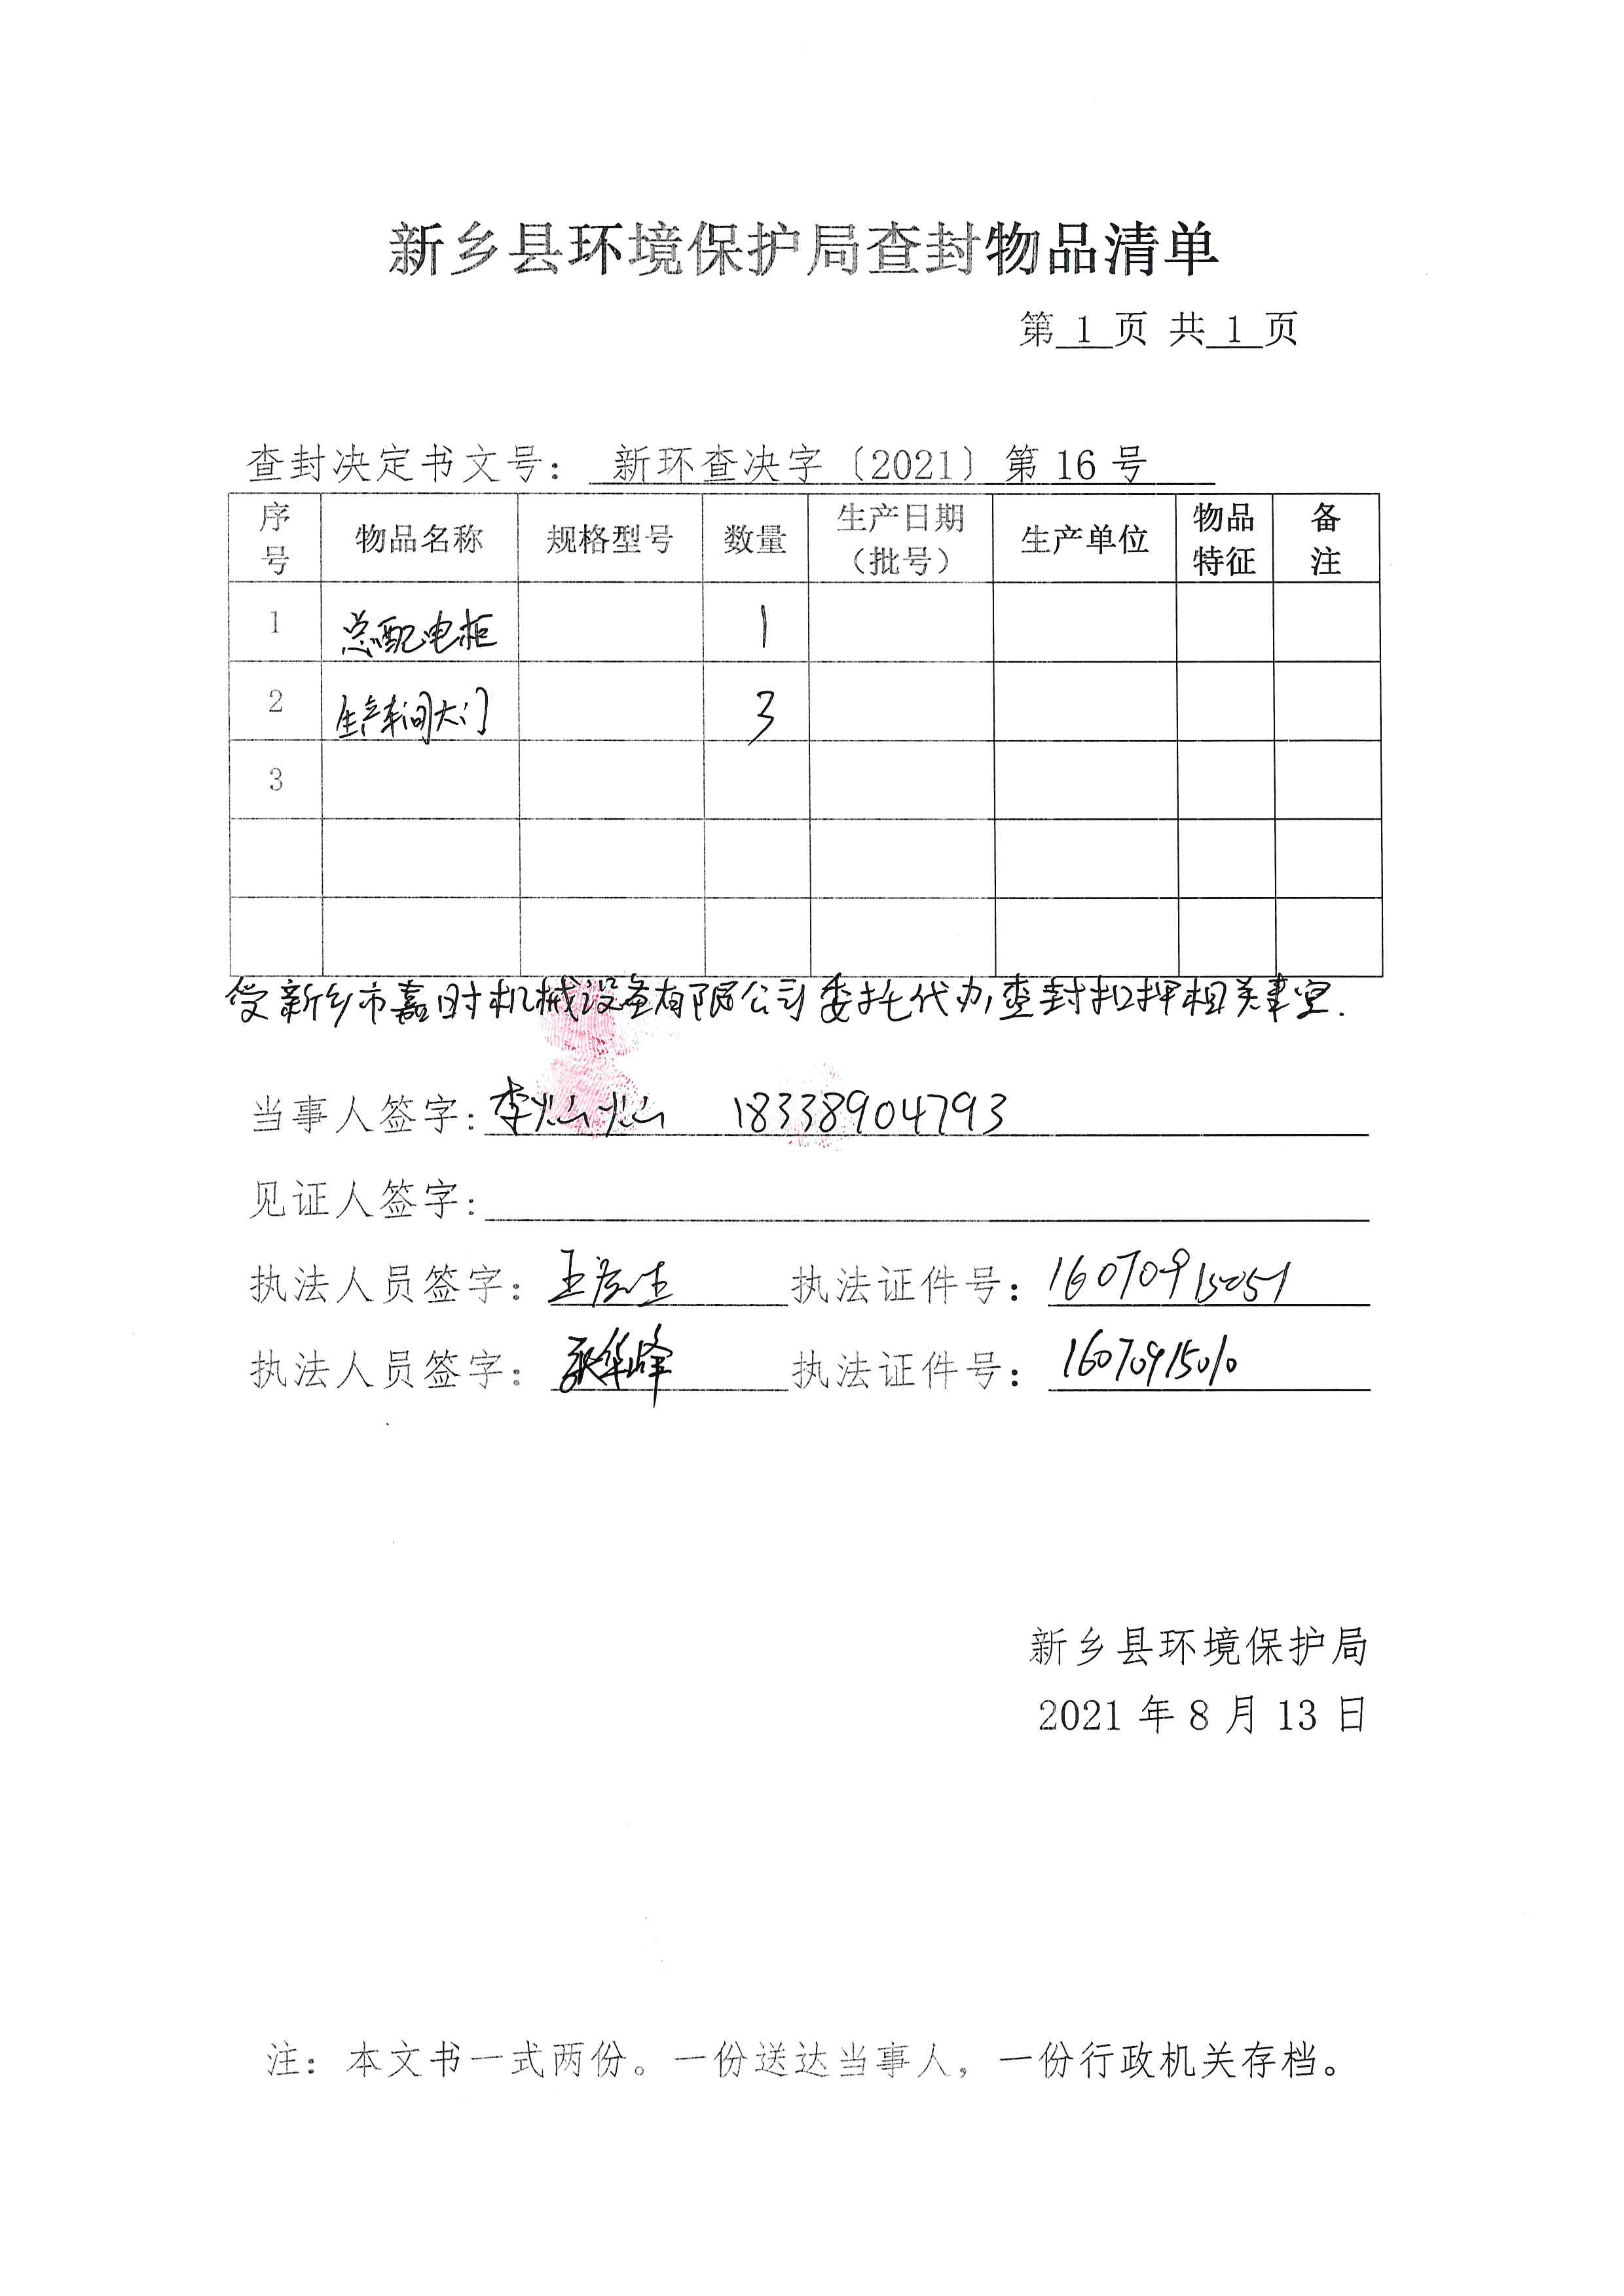 新乡县环境保护局查封物品清单
第 1 页 共 1 页
查封决定书文号： 新环查决字〔2021〕第 16 号
序号 物品名称 规格型号 数量 生产日期（批号） 生产单位 物品特征 备注
1 总配电柜 1
2 生产车间大门 3
3
受新乡市嘉时机械设备有限公司委托代办查封扣押相关事宜.
当事人签字: 李灿灿 18338904793
见证人签字:
执法人员签字: 王 生 执法证件号: 16070915051
执法人员签字: 华峰 执法证件号: 16070915010
新乡县环境保护局
2021 年 8 月 13 日
注：本文书一式两份。一份送达当事人，一份行政机关存档。